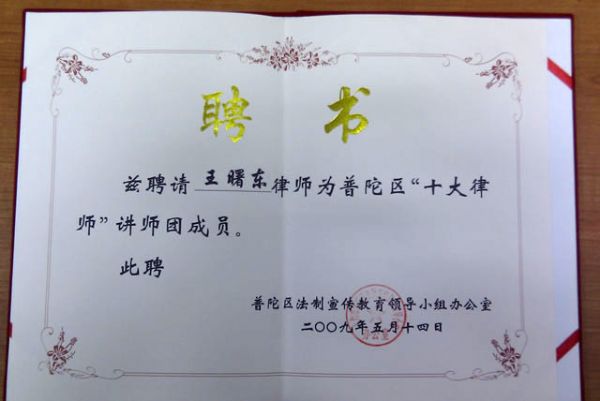 聘书
兹聘请王曙东律师为普陀区“十大律
师”讲师团成员。
此聘
普陀区法制宣传教育领导小组办公室
二〇〇九年五月十四日
办公室